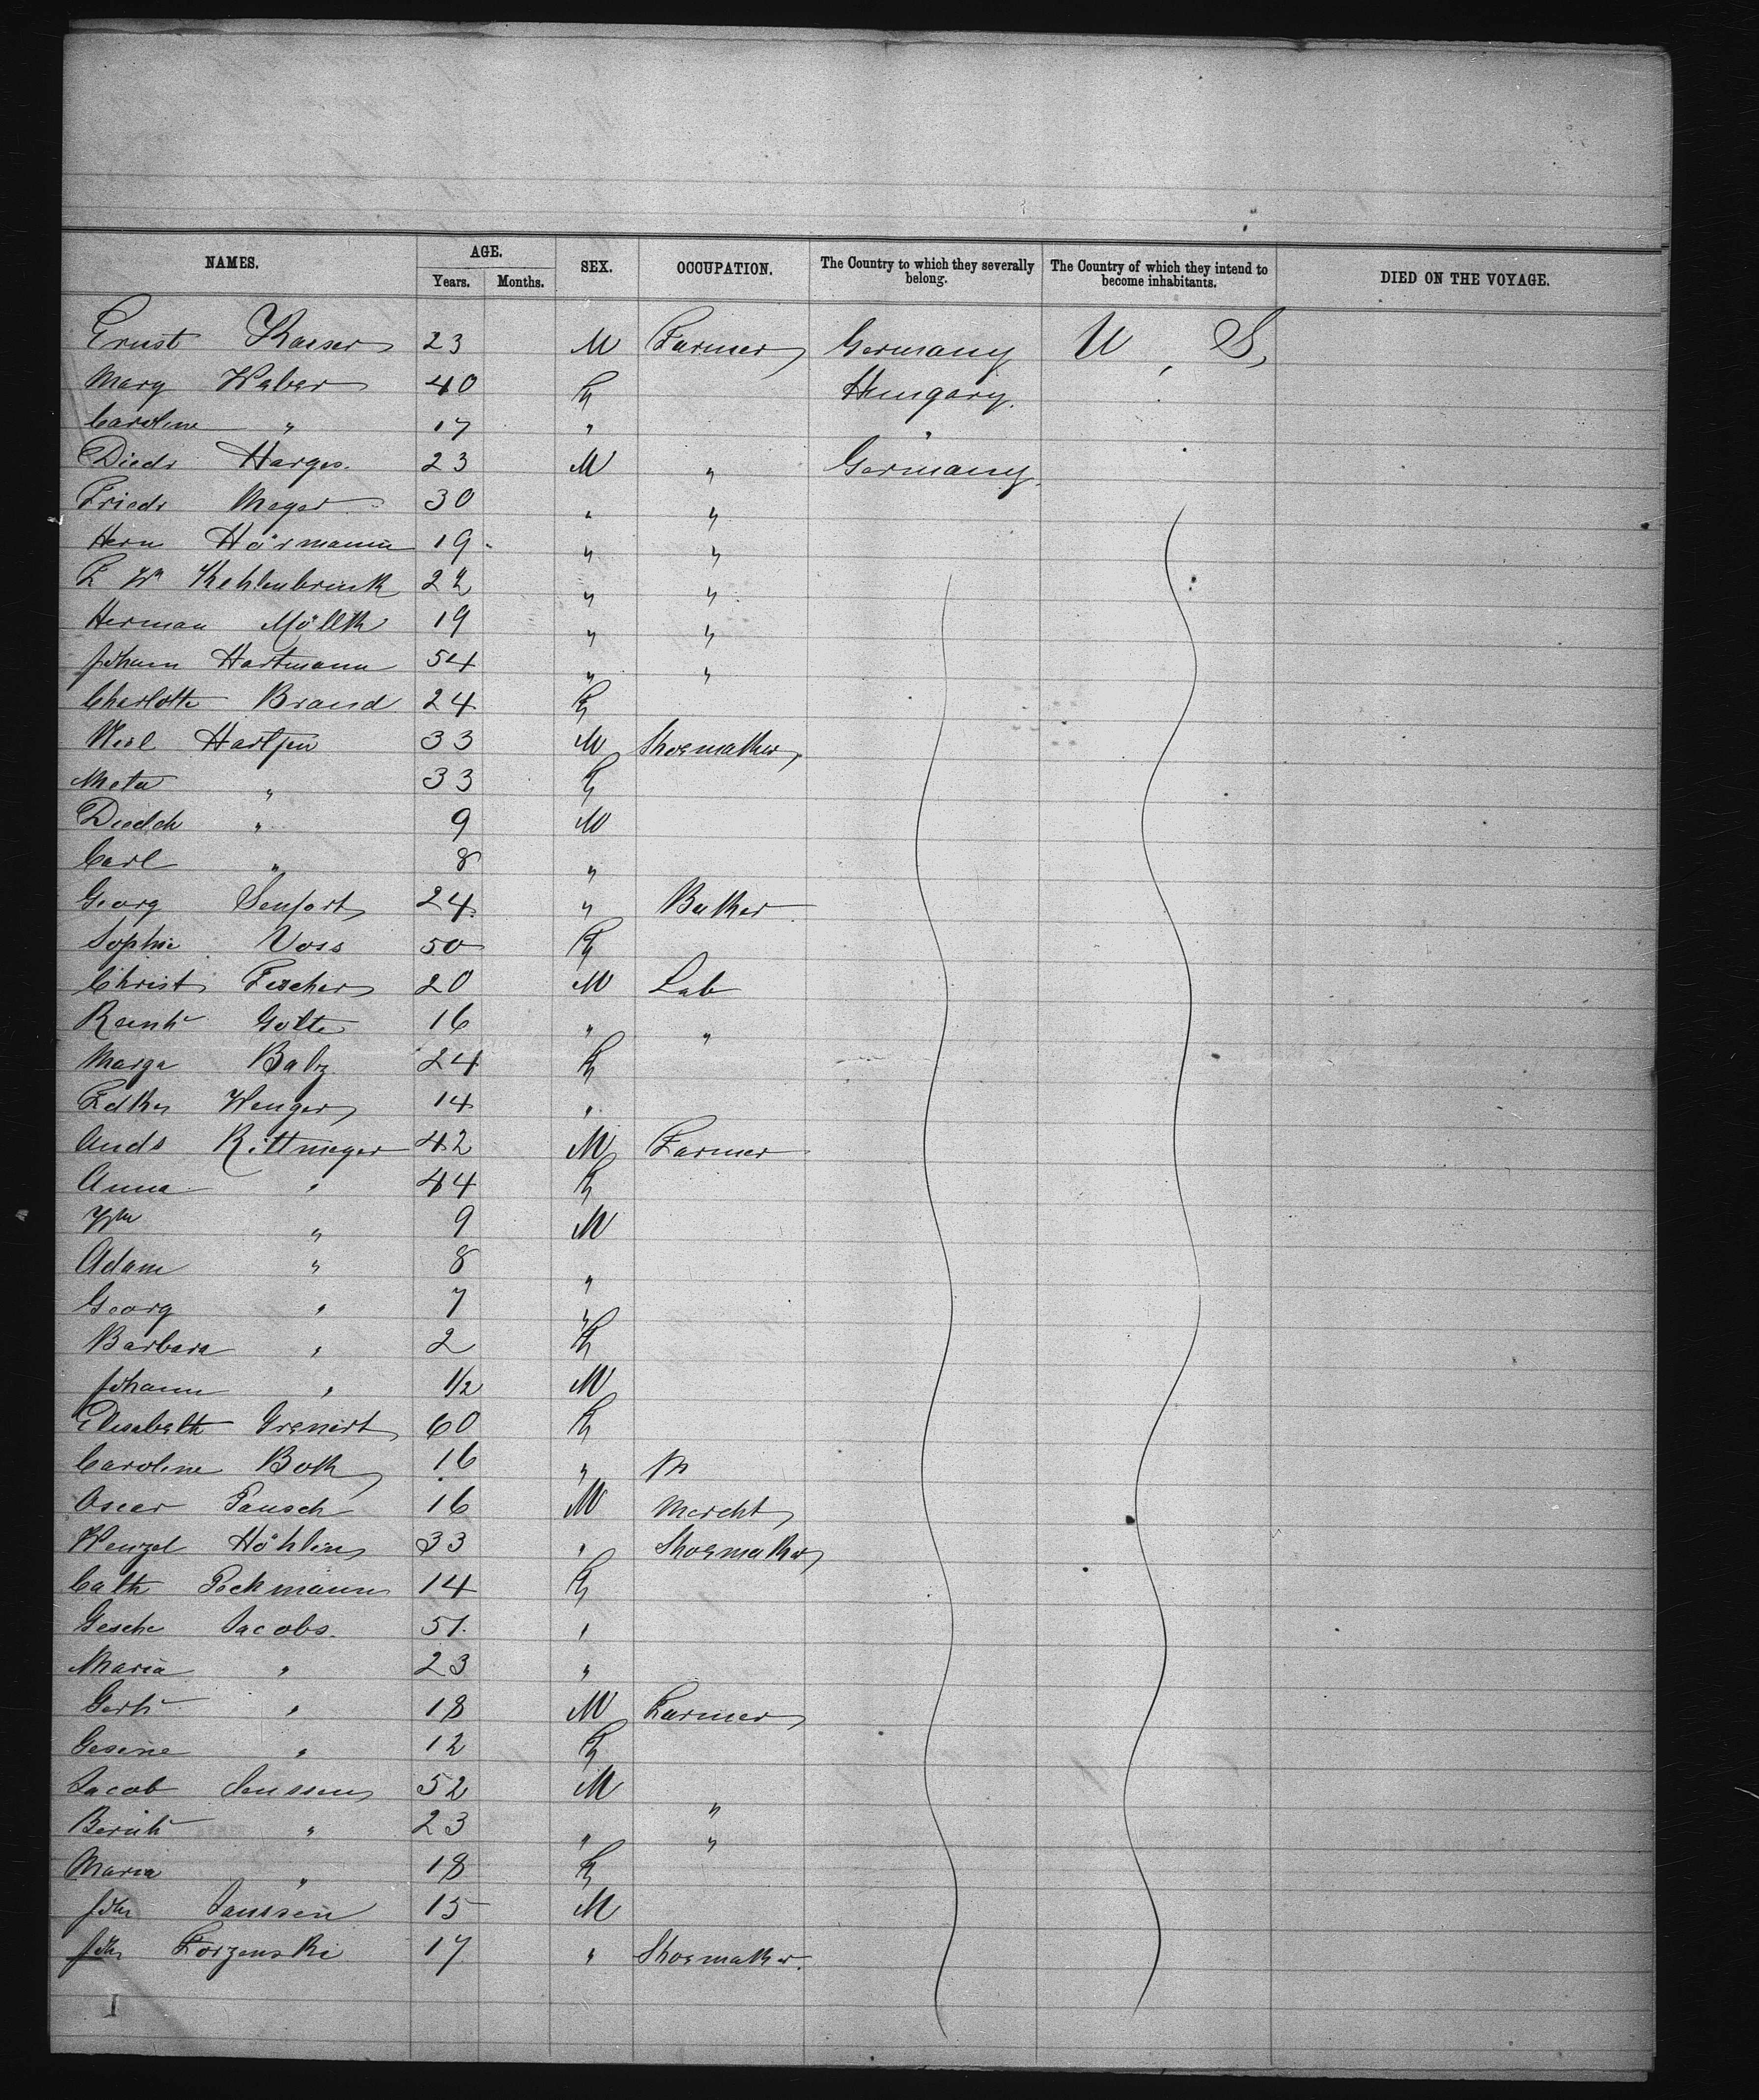 NAMES. AGE. SEX. OCCUPATION. The Country to which they severally belong. The Country of which they intend to become inhabitants. DIED ON THE VOYAGE.
Years. Months.
Ernst Kaiser 23 M Farmer Germany U. S.
Marg Weber 40 F Hungary.
Caroline " 17 " "
Diedr Harges. 23 M " Germany.
Friedr Meyer 30 " "
Hern Hörmann 19 " "
F Wm Kehlenbrink 22 " "
Herman 19 " "
Johann Hartmann 54 " "
Charlotte Brand 24 F
Hartjen 33 M Shoemaker
Meta " 33 F
Diedch " 9 M
Carl " 8 "
Georg Senfort 24 " Baker
Sophie Voss 50 F
Christ Fischer 20 M Lab
Reinh Gölte 16 " "
Marga Balz 24 F
Wenger 14 "
Andr Rittmeyer 42 M Farmer
Anna " 44 F
Wm " 9 M
Adam " 8 "
Georg " 7 "
Barbara " 2 F
Johann " 1/2 M
Elisabeth 60 F
Caroline Both 16 "
Oscar Pausch 16 M Mercht
Wenzel Höhlin 33 " Shoemaker
Cath Peckmann 14 F
Gesche Jacobs. 51. "
Maria " 23 "
Gerh " 18 M Farmer
Gesine " 12 F
Jacob Janssen 52 M "
Bernh " 23 " "
Maria " 18 F
Joh Janssen 15 M
Joh 17 " Shoemaker.
I